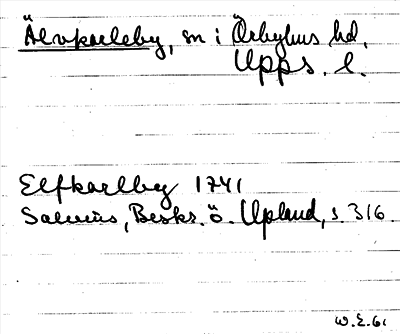 Älvkarleby, sn i Örbyhus hd,
Upps. l.
Elfkarlby 1741
Salvius, Beskr. ö. Upland, s 316.
W.E. 61